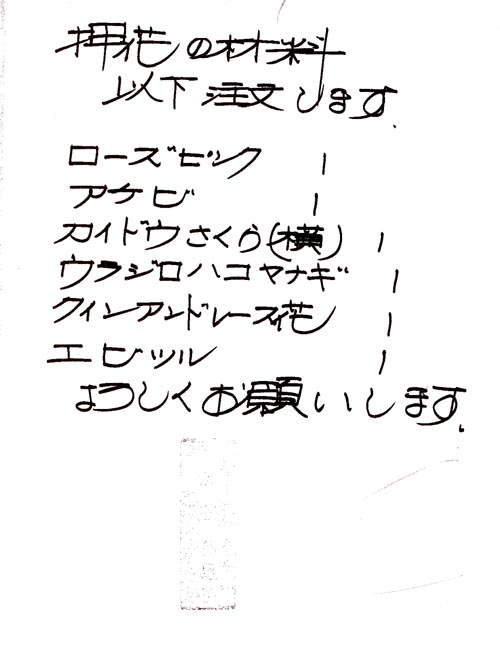 押花の材料
以下注文します.
ローズピンク 1
アケビ 1
カイドウさくら(横) 1
ウラジロハコヤナギ 1
クインアンドレース花 1
エビヅル 1
よろしくお願いします.